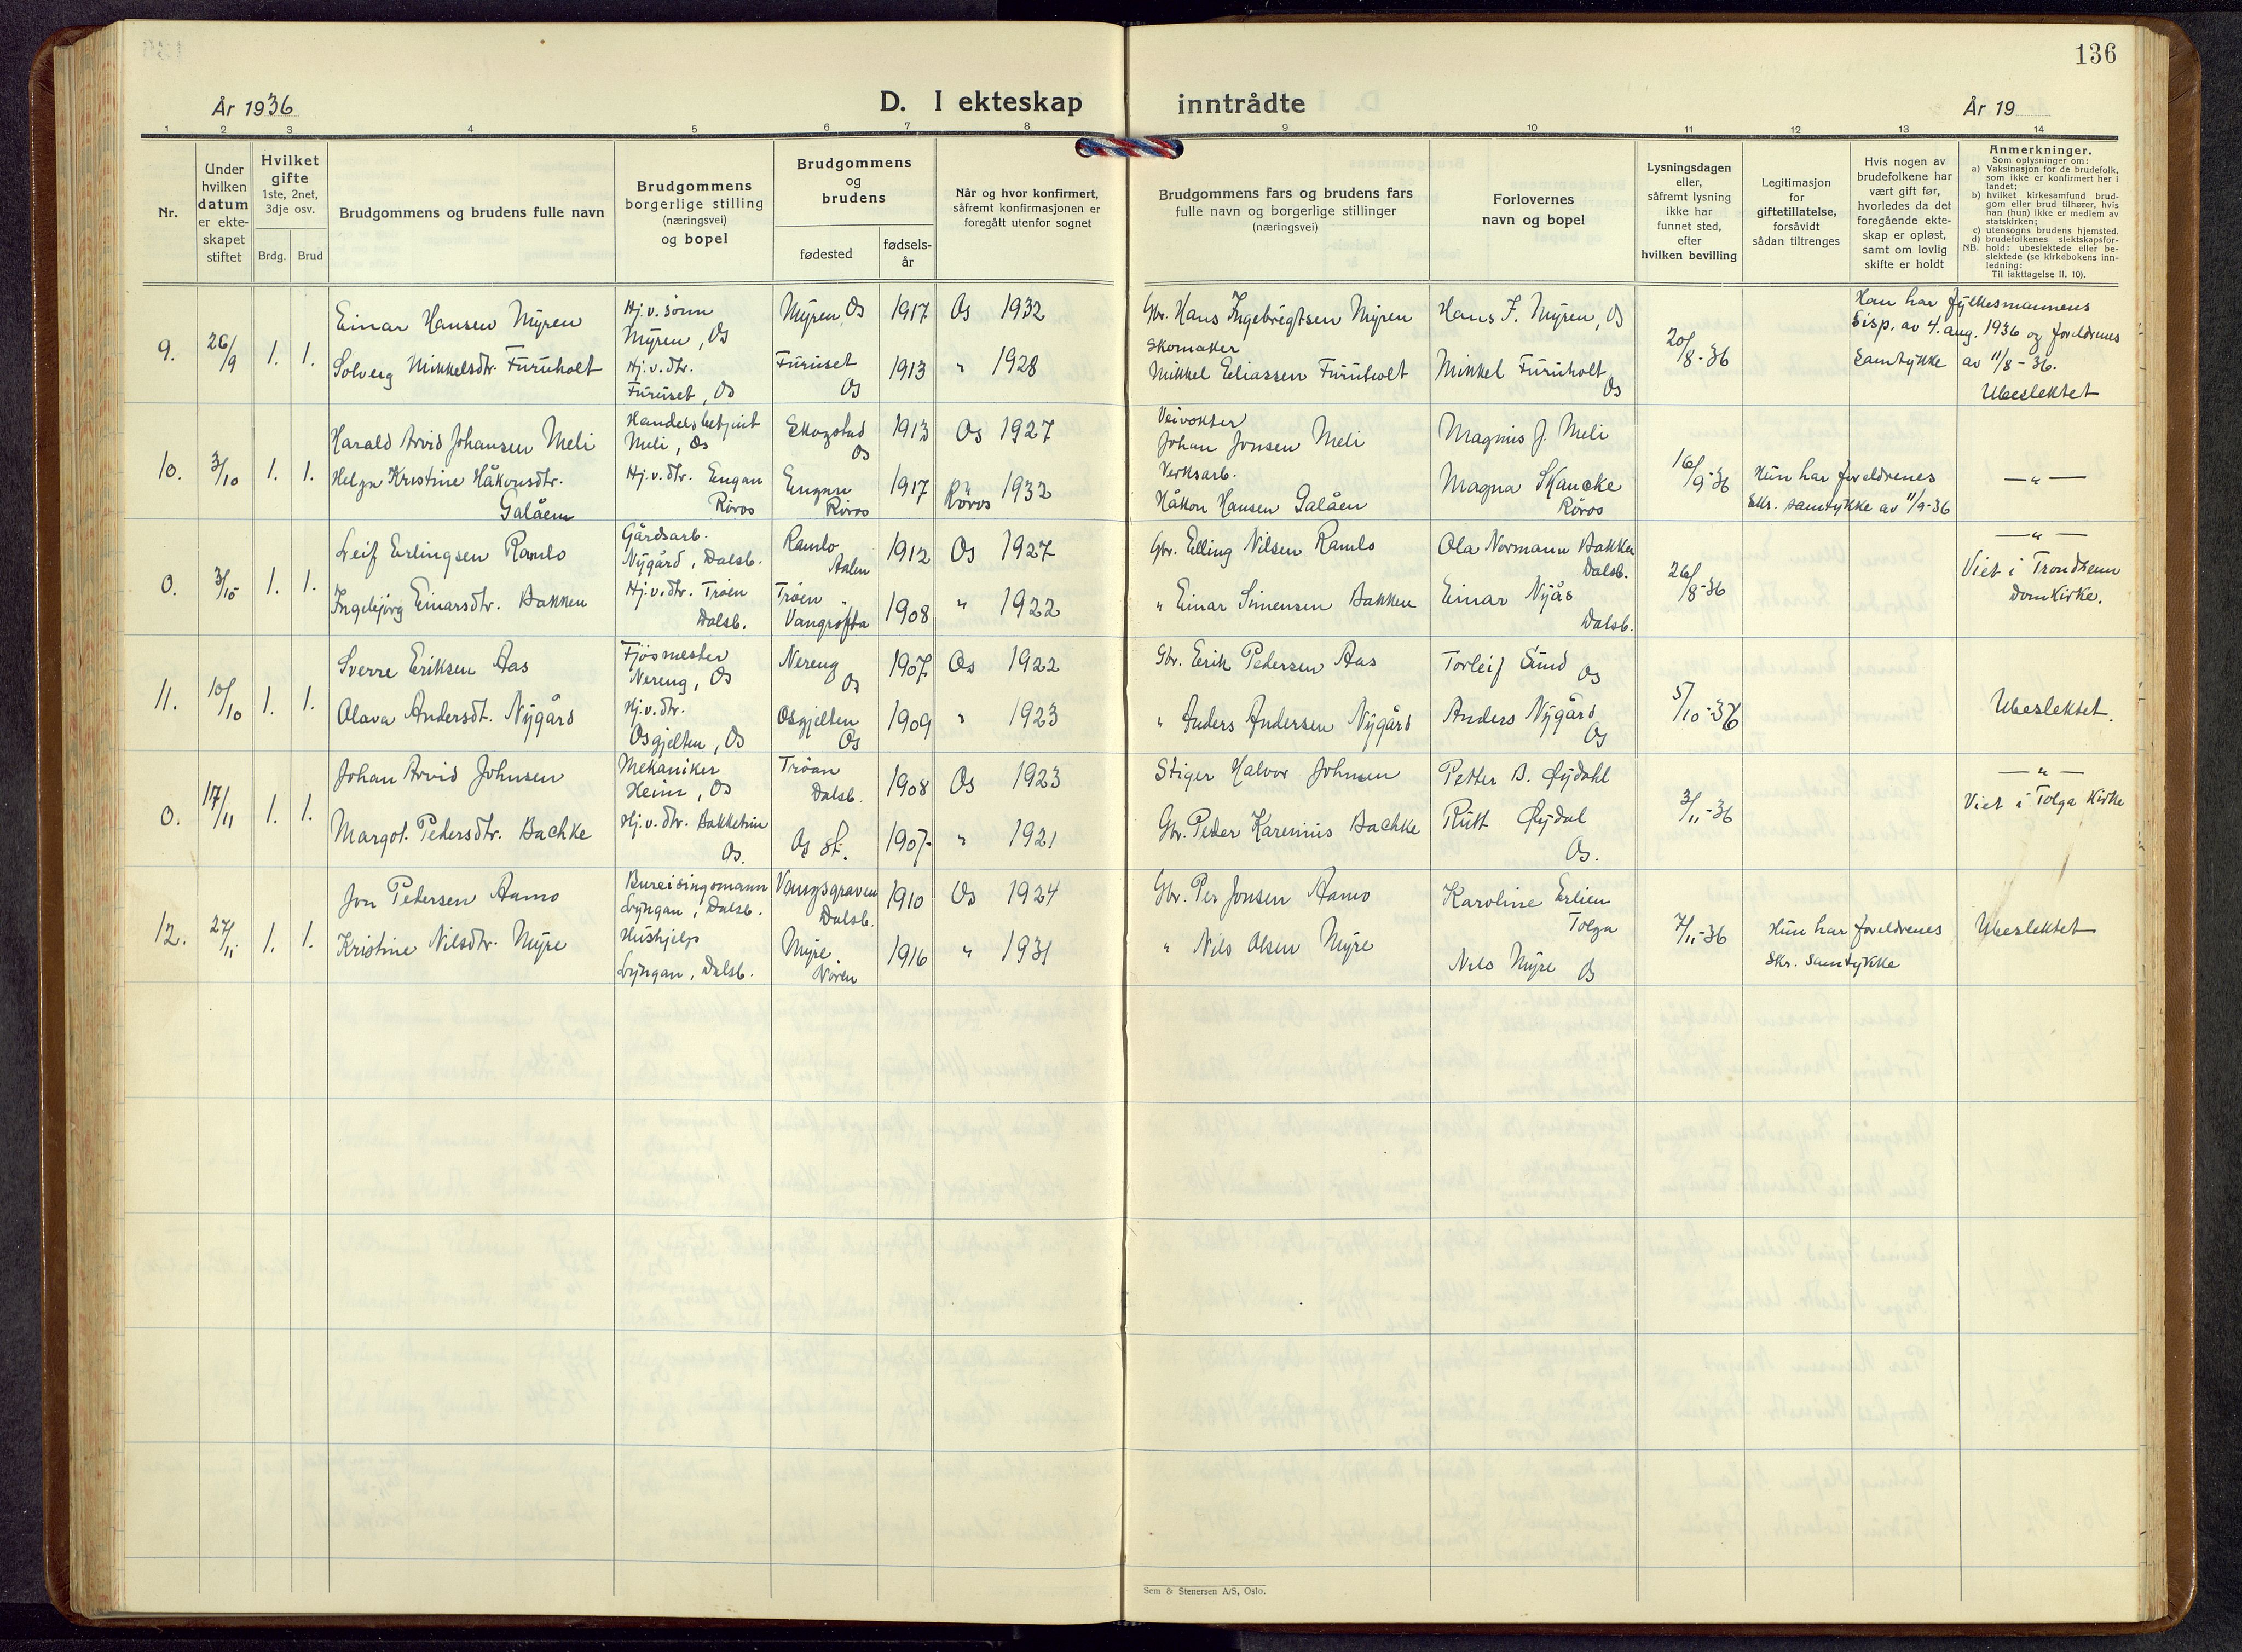 136
År 1936
D. I ekteskap inntrådte
År 19
1 2 3 4 5 6 7 8 9 10 11 12 13 14
Nr.
Under
hvilken
datum
er ekte-
skapet
stiftet
Hvilket
gifte
1ste, 2net,
3dje osv.
Brdg. Brud
Brudgommens og brudens fulle navn
Brudgommens
borgerlige stilling
(næringsvei)
og bopel
Brudgommens
og
brudens
fødested
fødsels-
år
Når og hvor konfirmert,
såfremt konfirmasjonen er
foregått utenfor sognet
Brudgommens fars og brudens fars
fulle navn og borgerlige stillinger
(næringsvei)
Forlovernes
navn og bopel
Lysningsdagen
eller,
såfremt lysning
ikke har
funnet sted,
efter
hvilken bevilling
Legitimasjon
for
giftetillatelse,
forsåvidt
sådan tiltrenges
Hvis nogen av
brudefolkene har
vært gift før,
hvorledes da det
foregående ekte-
skap er opløst,
samt om lovlig
skifte er holdt
Anmerkninger.
Som oplysninger om:
a) Vaksinasjon for de brudefolk,
som ikke er konfirmert her i
landet;
b) hvilket kirkesamfund brud-
gom eller brud tilhører, hvis
han (hun) ikke er medlem av
statskirken;
c) utensogns brudens hjemsted.
d) brudefolkenes slektskapsfor-
NB. hold: ubeslektede eller be-
slektede (se kirkebokens inn-
ledning:
Til iakttagelse II. 10).
9.
26/9
1. 1.
Einar Hansen Myren
Solveig Mikkelsdtr. Furuholt
Hj.v. sønn
Myren, Os
Hj.v. dtr.
Furuset, Os
Myren, Os
Furuset
Os
1917
1913
Os 1932
" 1928
Gbr. Hans Ingebrigtsen Myren
Skomaker
Mikkel Eliassen Furuholt
Hans I. Myren, Os
Mikkel Furuholt
Os
20/8-36
Han har fylkesmannens
disp. av 4. aug. 1936 og foreldrenes
samtykke av 11/8-36.
Ubeslektet
10.
3/10
1. 1.
Harald Arvid Johansen Meli
Helga Kristine Håkonsdtr.
Galåen
Handelsbetjent
Meli, Os
Hj.v. dtr. Engan
Røros
Skogstad
Os
Engan
Røros
1913
1917
Os 1927
Røros 1932
Veivokter
Johan Jonsen Meli
Verksarb.
Håkon Hansen Galåen
Magnus J. Meli
Magna Skancke
Røros
16/9-36
Hun har foreldrenes
skr. samtykke av 11/9-36
— " —
0.
3/10
1. 1.
Leif Erlingsen Ramlo
Ingebjørg Einarsdtr. Bakken
Gårdsarb.
Nygård, Dalsb.
Hj.v. dtr. Trøen
Dalsb.
Ramlo
Aalen
Trøen
Vangrøfta
1912
1908
Os 1927
" 1922
Gbr. Elling Nilsen Ramlo
" Einar Simensen Bakken
Ola Normann Bakken
Dalsb.
Einar Nyås
Dalsb.
26/8-36
— " —
Viet i Trondheim
Domkirke.
11.
10/10
1. 1.
Sverre Eriksen Aas
Olava Andersdt. Nygård
Fjøsmester
Nereng, Os
Hj.v. dtr.
Osgjelten, Os
Nereng
Os
Osgjelten
Os
1907
1909
Os 1922
" 1923
Gbr. Erik Pedersen Aas
" Anders Andersen Nygård
Torleif Sund
Os
Anders Nygård
Os
5/10-36
Ubeslektet.
0.
17/11
1. 1.
Johan Arvid Johnsen
Margot Pedersdtr. Bachke
Mekaniker
Heim, Os
Hj.v. dtr. Bakketun
Os.
Trøan
Dalsb.
Os st.
1908
1907
Os 1923
" 1921
Stiger Halvor Johnsen
Gbr. Peder Karenius Bachke
Petter B. Øydahl
Rutt Øydal
Os.
3/11-36
— " —
Viet i Tolga Kirke
12.
27/11
1. 1.
Jon Pedersen Aamo
Kristine Nilsdtr. Myre
Bureisingsmann
Lyngan, Dalsb.
Hushjelp
Lyngan, Dalsb.
Vangsgraven
Dalsb.
Myre
Nøren
1910
1916
Os 1924
" 1931
Gbr. Per Jonsen Aamo
" Nils Olsen Myre
Karoline Erlien
Tolga
Nils Myre Os
7/11-36
Hun har foreldrenes
skr. samtykke
Ubeslektet
Sem & Stenersen A/S, Oslo.